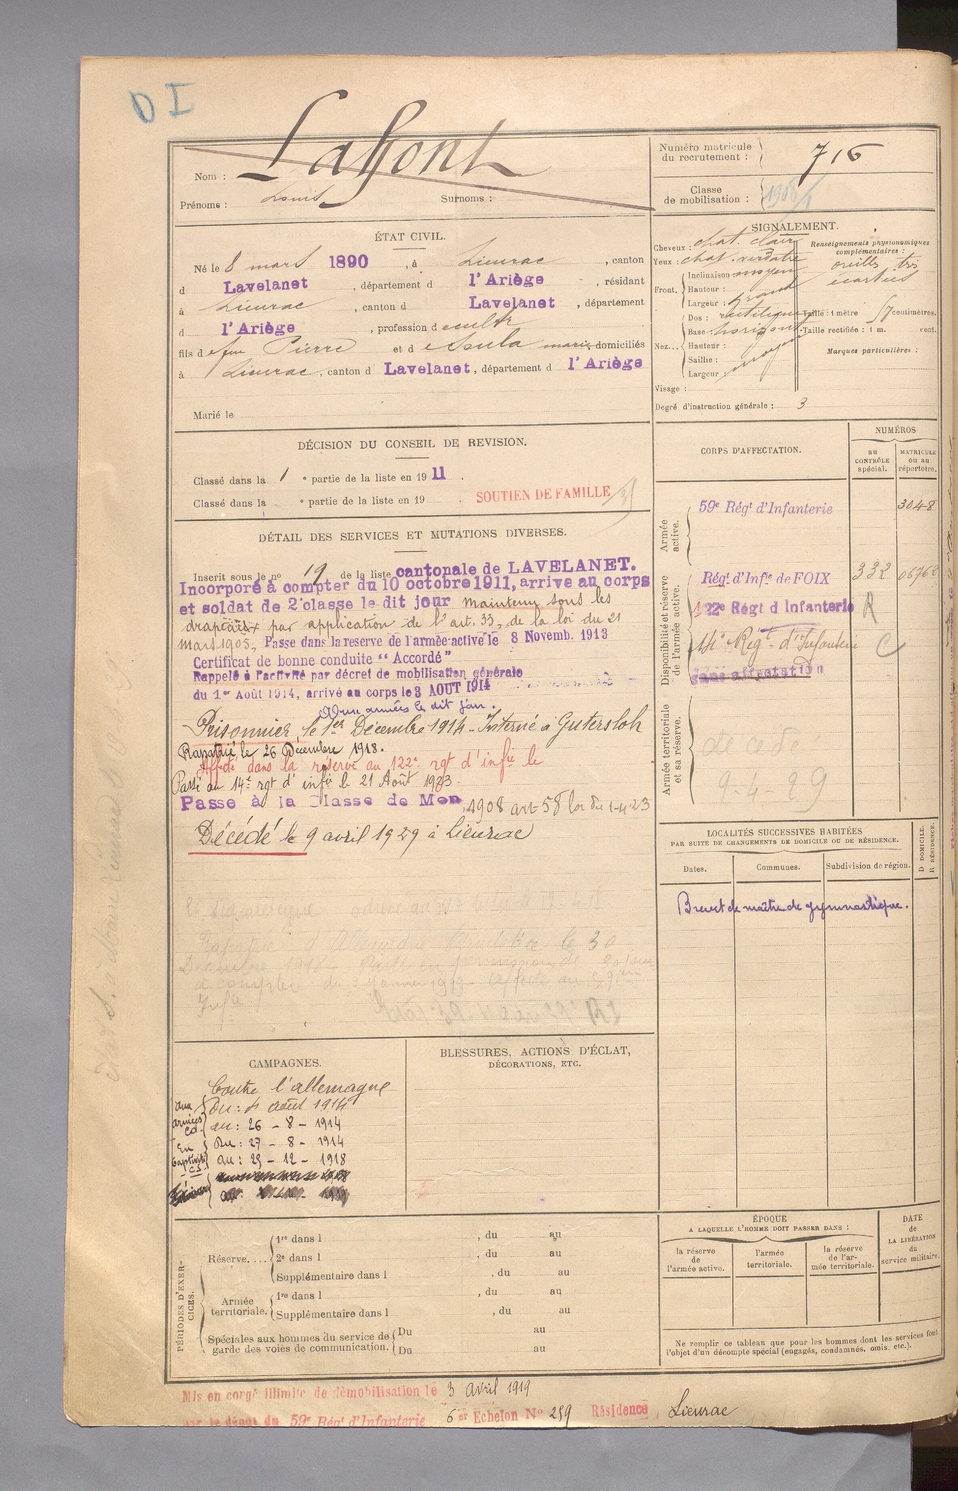 DI
Nom : Laffont
Prénoms : Louis Surnoms :
Numéro matricule du recrutement : 716
Classe de mobilisation : 1908
ÉTAT CIVIL.
Né le 8 mars 1890, à Lieurac, canton
d Lavelanet, département d l'Ariège, résidant
à Lieurac, canton d Lavelanet, département
d l'Ariège, profession d cultr
fils de feu Pierre et d domiciliés
à Lieurac, canton d Lavelanet, département d l'Ariège
Marié le
SIGNALEMENT.
Cheveux : chat. clair
Yeux : chat. verdâtre
Front. Inclinaison moyen
Hauteur :
Largeur : grand
Nez... Dos : rectiligne
Base horizont
Hauteur :
Saillie :
Largeur : moyen
Visage :
Renseignements physionomiques complémentaires :
oreilles très
écartées
Taille : 1 mètre centimètres.
Taille rectifiée : 1 m. cent.
Marques particulières :
Degré d'instruction générale : 3
DÉCISION DU CONSEIL DE REVISION.
Classé dans la 1 e partie de la liste en 1911.
Classé dans la e partie de la liste en 19 .
SOUTIEN DE FAMILLE
DÉTAIL DES SERVICES ET MUTATIONS DIVERSES.
Inscrit sous le no 19 de la liste cantonale de LAVELANET.
Incorporé à compter du 10 octobre 1911, arrive au corps
et soldat de 2e classe le dit jour maintenu sous les
drapeaux par application de l'art. 33, de la loi du 21
mars 1905, Passe dans la reserve de l'armée active le 8 Novemb. 1913
Certificat de bonne conduite "Accordé"
Rappelé à l'activité par décret de mobilisation générale
du 1er Août 1914, arrivé au corps le 3 AOUT 1914
Aux armées le dit jour.
Prisonnier le 1er Décembre 1914 - Interné à Gutersloh
Rapatrié le 26 Décembre 1918.
Affecté dans la réserve au 122e rgt d'infie le
Passé au 14e rgt d'infie le 21 Août 1923.
Passe à la Classe de Mon 1908 art 58 loi du 1-4-23
Décédé le 9 avril 1929 à Lieurac
CORPS D'AFFECTATION.
NUMÉROS
AU CONTRÔLE spécial.
MATRICULE OU AU répertoire.
Armée active.
59e Régt d'Infanterie 3048
Disponibilité et réserve de l'armée active.
Régt d'Infie de FOIX 332
122e Régt d'Infanterie R
14e Régt d'Infanterie C
sans affectation
Armée territoriale et sa réserve.
décédé
9-4-29
LOCALITÉS SUCCESSIVES HABITÉES
PAR SUITE DE CHANGEMENTS DE DOMICILE OU DE RÉSIDENCE.
D DOMICILE. R RÉSIDENCE.
Dates. Communes. Subdivision de région.
Brevet de maître de gymnastique.
CAMPAGNES.
Contre l'allemagne
aux armées
Du : 4 août 1914
au : 26 - 8 - 1914
En captivité
Du : 27 - 8 - 1914
au : 25 - 12 - 1918
BLESSURES, ACTIONS D'ÉCLAT,
DÉCORATIONS, ETC.
PÉRIODES D'EXERCICES.
Réserve.... 1re dans l , du au
2e dans l , du au
Supplémentaire dans l , du au
Armée territoriale. 1re dans l , du au
Supplémentaire dans l , du au
Spéciales aux hommes du service de garde des voies de communication. Du au
Du au
ÉPOQUE
A LAQUELLE L'HOMME DOIT PASSER DANS :
la réserve de l'armée active.
l'armée territoriale.
la réserve de l'armée territoriale.
DATE de LA LIBÉRATION du service militaire.
Ne remplir ce tableau que pour les hommes dont les services font
l'objet d'un décompte spécial (engagés, condamnés, omis, etc.).
Mis en congé illimité de démobilisation le 3 avril 1919
par le dépôt du 59e Régt d'Infanterie 6e Echelon No 259 Résidence Lieurac